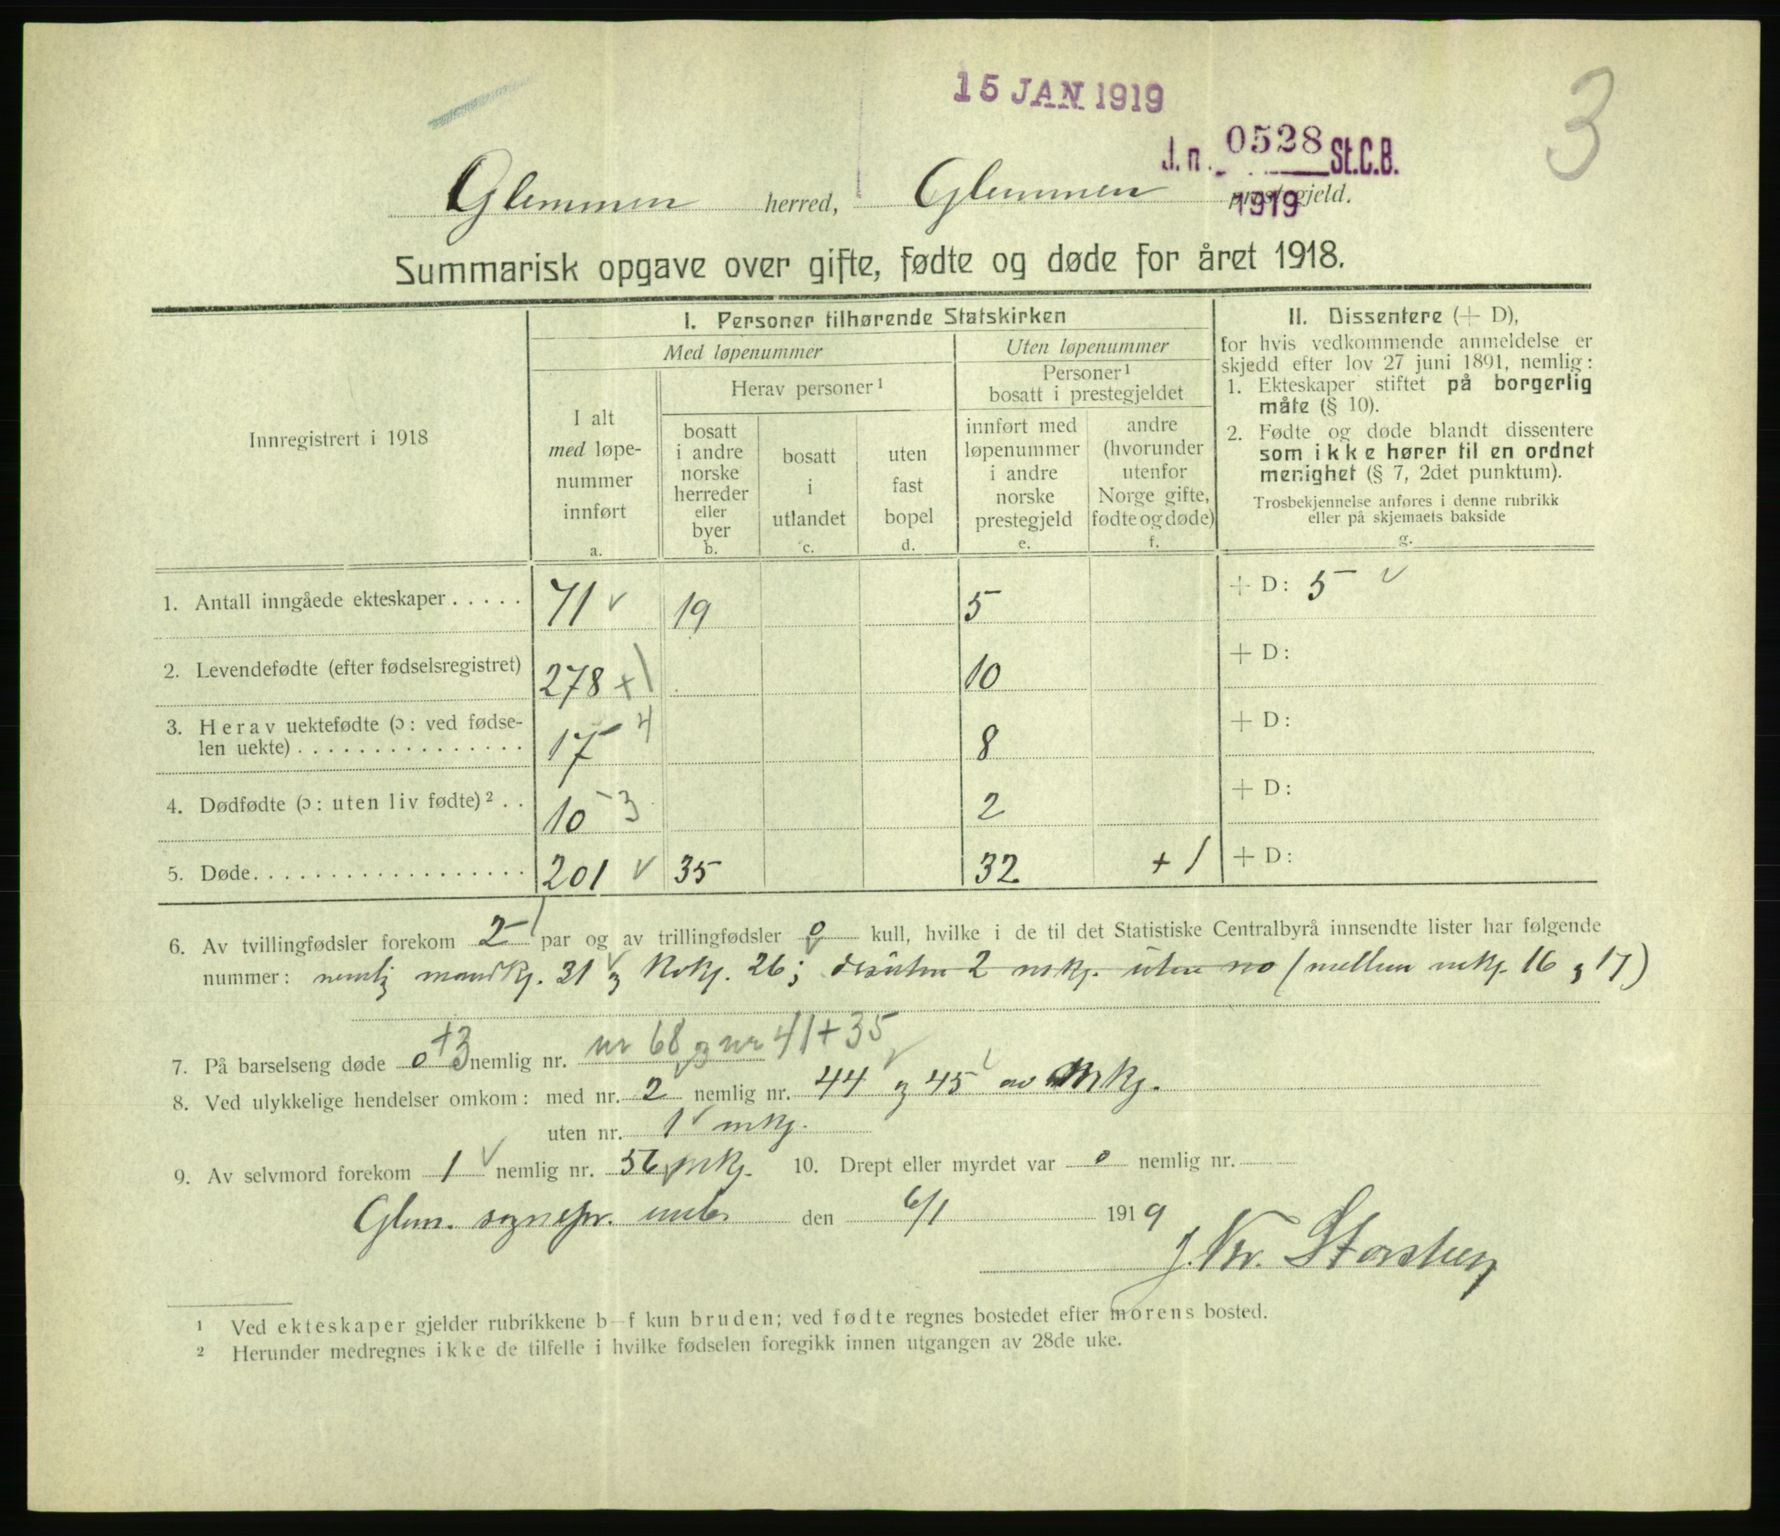 15 JAN 1919
3
J. n. 0528 St.C.B.
1919
Glemmen herred, Glemmen prestegjeld.
Summarisk opgave over gifte, fødte og døde for året 1918.
Innregistrert i 1918
I. Personer tilhørende Statskirken
Med løpenummer
Uten løpenummer
I alt
med løpe-
nummer
innført
a.
Herav personer¹
bosatt
i andre
norske
herreder
eller
byer
b.
bosatt
i
utlandet
c.
uten
fast
bopel
d.
Personer¹
bosatt i prestegjeldet
innført med
løpenummer
i andre
norske
prestegjeld
e.
andre
(hvorunder
utenfor
Norge gifte,
fødte og døde)
f.
II. Dissentere (+ D),
for hvis vedkommende anmeldelse er
skjedd efter lov 27 juni 1891, nemlig:
1. Ekteskaper stiftet på borgerlig
måte (§ 10).
2. Fødte og døde blandt dissentere
som ikke hører til en ordnet
menighet (§ 7, 2det punktum).
Trosbekjennelse anføres i denne rubrikk
eller på skjemaets bakside
g.
1. Antall inngåede ekteskaper..... 71 ✓ 19 5 + D: 5 ✓
2. Levendefødte (efter fødselsregistret) 278 + 1 10 + D:
3. Herav uektefødte (ɔ: ved fødse-
len uekte)............... 17 - 4 8 + D:
4. Dødfødte (ɔ: uten liv fødte)² .. 10 - 3 2 + D:
5. Døde.................. 201 ✓ 35 32 + 1 + D:
6. Av tvillingfødsler forekom 2 par og av trillingfødsler 0 kull, hvilke i de til det Statistiske Centralbyrå innsendte lister har følgende
nummer: nemlig mandkj. 31 og Kvkj. 26; desuten 2 mkj. uten no (mellem mkj. 16 og 17)
7. På barselseng døde 0 +3 nemlig nr. nr 68 og nr 41 + 35
8. Ved ulykkelige hendelser omkom: med nr. 2 nemlig nr. 44 ✓ og 45 ✓ av Mkj.
uten nr. 1 ✓ mkj.
9. Av selvmord forekom 1 ✓ nemlig nr. 56 mkj. 10. Drept eller myrdet var 0 nemlig nr.
Glem. sognepr. emb. den 6/1 1919
J. Kr. Storsberg
¹ Ved ekteskaper gjelder rubrikkene b—f kun bruden; ved fødte regnes bostedet efter morens bosted.
² Herunder medregnes ikke de tilfelle i hvilke fødselen foregikk innen utgangen av 28de uke.